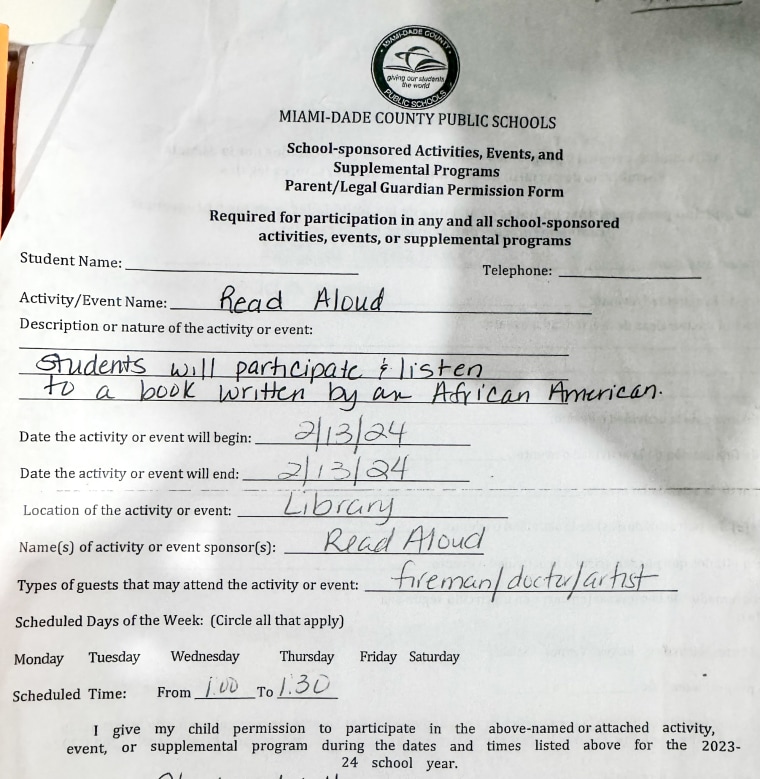 MIAMI-DADE COUNTY
giving our students
the world
PUBLIC SCHOOLS
MIAMI-DADE COUNTY PUBLIC SCHOOLS
School-sponsored Activities, Events, and
Supplemental Programs
Parent/Legal Guardian Permission Form
Required for participation in any and all school-sponsored
activities, events, or supplemental programs
Student Name: Telephone:
Activity/Event Name: Read Aloud
Description or nature of the activity or event:
Students will participate & listen
to a book written by an African American.
Date the activity or event will begin: 2/13/24
Date the activity or event will end: 2/13/24
Location of the activity or event: Library
Name(s) of activity or event sponsor(s): Read Aloud
Types of guests that may attend the activity or event: fireman/doctor/artist
Scheduled Days of the Week: (Circle all that apply)
Monday Tuesday Wednesday Thursday Friday Saturday
Scheduled Time: From 1.00 To 1.30
I give my child permission to participate in the above-named or attached activity,
event, or supplemental program during the dates and times listed above for the 2023-
24 school year.